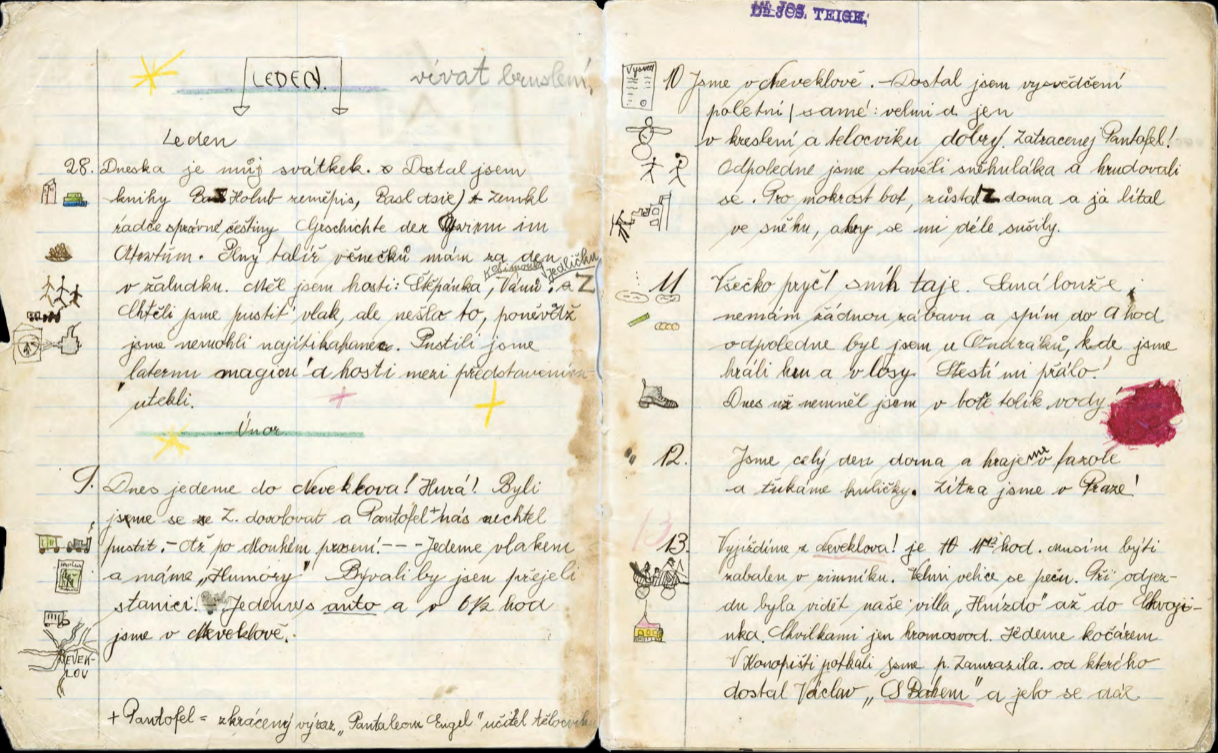 LEDEN.
vivat bruslení,
Leden
28. Dneska je můj svátkek. Dostal jsem
knihy Holub zeměpis, East dsie) Zemkl
rádce správné češtiny Geschichte der im
Altertům. Plný talíř věnečků mám za den
v žaludku. Měl jsem hosti: Štěpánka, Váňu, a Z
Jedličku
Chtěli jsme pustit vlak, ale nešlo to, poněvdž
jsme nemohli najíti kahanec. Pustili jsme
laternu magicu a hosti mezi představením
utekli.
Únor
9. Dnes jedeme do Neveklova! Hurá! Byli
jsme se ze Z. dovolovat a Pantofel+ nás nechtel
pustit. - Až po dlouhém prosení. --- Jedeme vlakem
a máme „Humory" Bývali by jsem přejeli
stanici. Jedenvs auto a v 6½ hod
jsme v Neveklově.
NEVEK-
LOV
+ Pantofel = zkrácený výraz „Pantaleon Engel" učitel tělocviku
Dr. JOS. TEIGE.
Vysvěd
10 Jsme v Neveklově. - Dostal jsem vysvědčení
poletní / samé: velmi d. jen
v kreslení a tělocviku dobrý. Zatracenej Pantofel!
Odpoledne jsme stavěli sněhuláka a hrudovali
se. Pro mokrost bot, zůstal Z doma a já lítal
ve sněhu, aby se mi déle sušily.
11 Všecko pryč! sníh taje. Samá louže,
nemám žádnou zábavu a spím do 9 hod
odpoledne byl jsem u Ondráků, kde jsme
hráli hru a vlosy. Štestí mi přálo!
Dnes už nemněl jsem v botě tolik vody
12. Jsme celý den doma a hrajemo fazole
me
a ťukáme kuličky. Zítra jsme v Praze!
13
13. Vyjíždíme z Neveklova! je 11 hod. musím býti
zabalen v zimníku. Velmi velice se peču. Při odjez-
du byla vidět naše villa „Hnízdo" až do Chvoji-
nka. Chvilkami jen hromosvod. Jedeme kočárem
V Konopišti potkali jsme p. Zamrazila. od kterého
dostal Václav „S Bohem" a jelo se dál